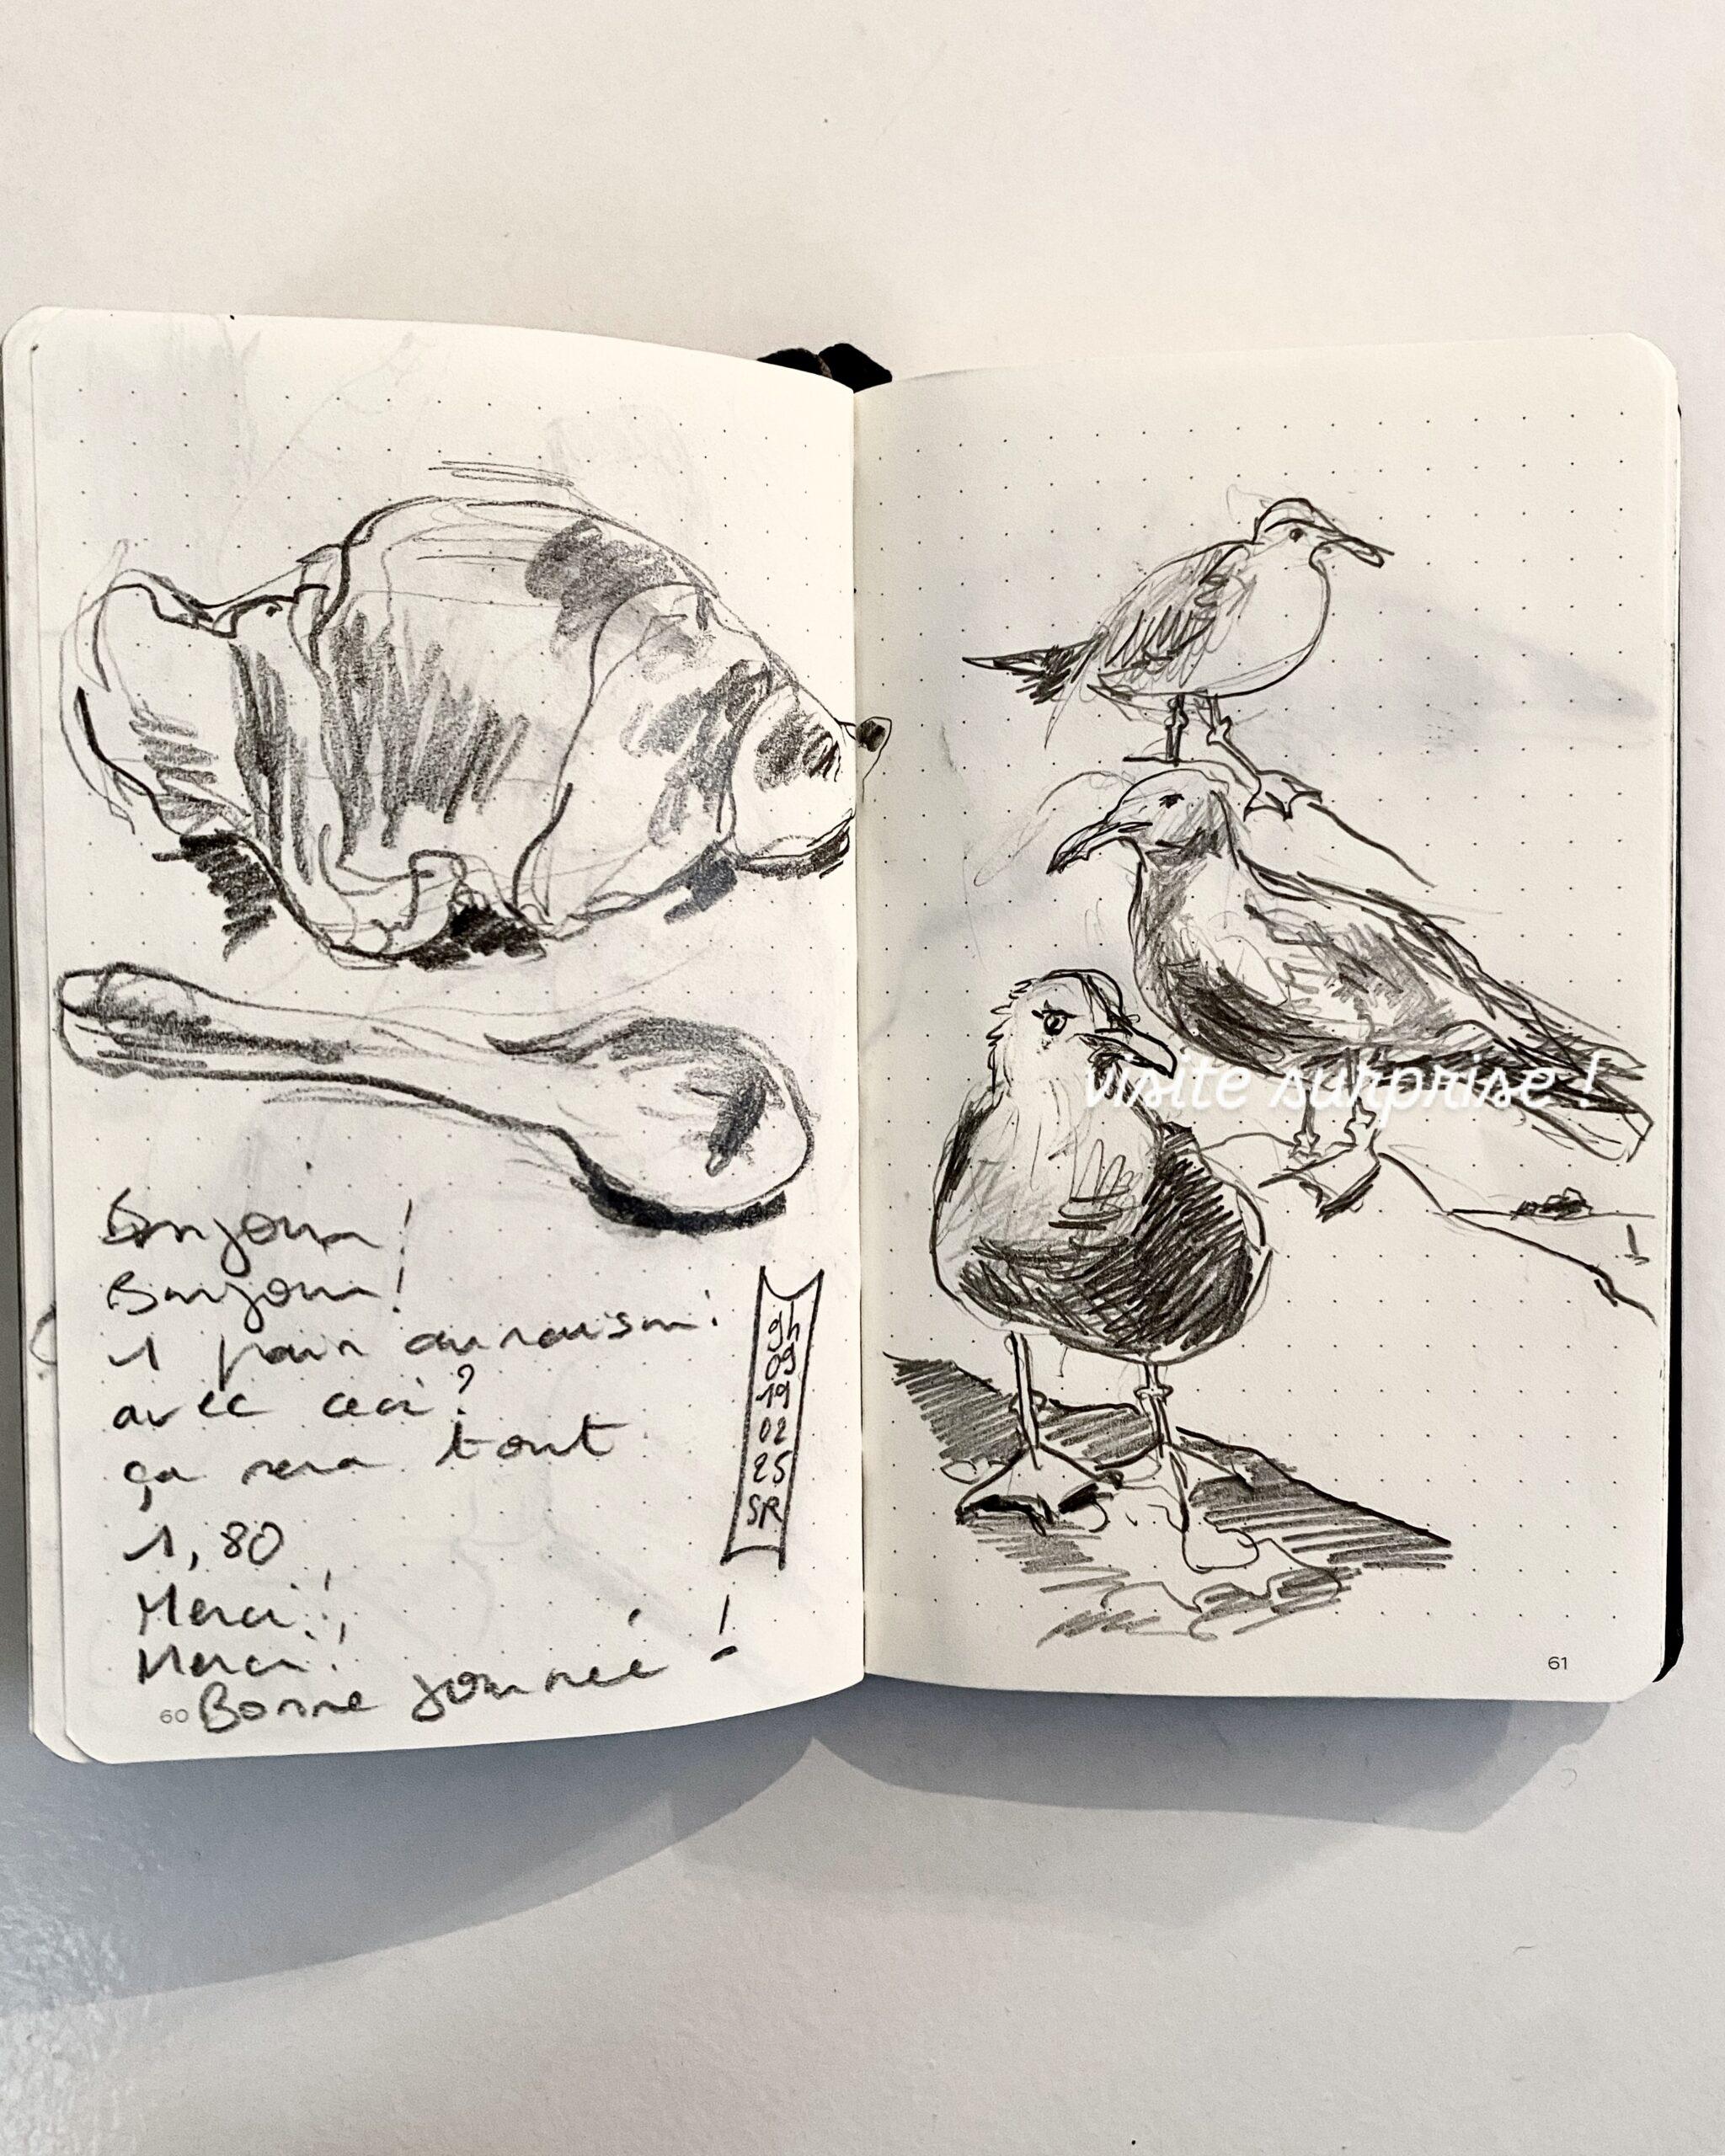 Bonjour !
Bonjour !
1 pain au raisin !
avec ceci ?
ça sera tout
1,80
Merci !
Merci !
Bonne journée !
60
9h
09
19
02
25
SR
visite surprise !
61